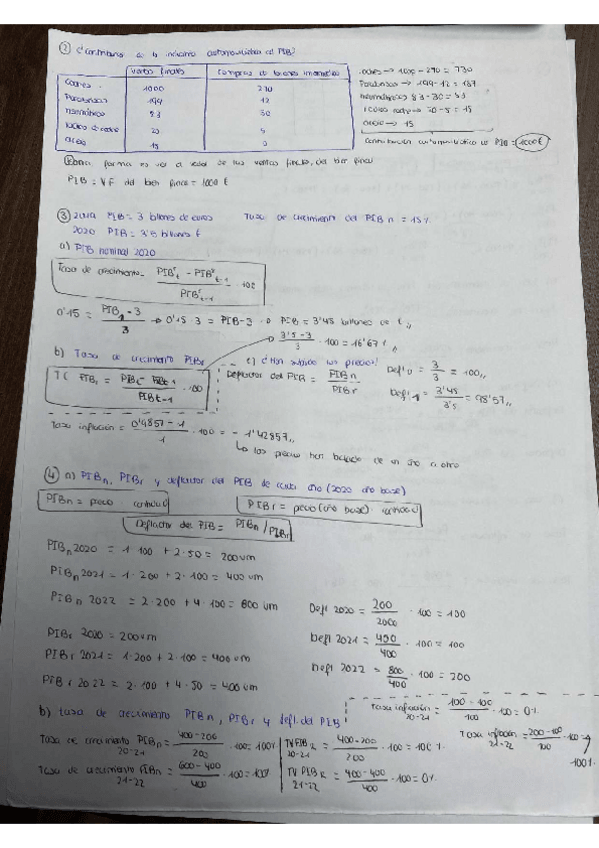 ② ¿Contribución de la industria automovilística al PIB?
Ventas finales | Compras de bienes intermedios
Coches | 1000 | 270
Parabrisas | 199 | 12
Neumáticos | 83 | 30
20 | 5
15 | 0
coches → 1000 - 270 = 730
Parabrisas → 199 - 12 = 187
Neumáticos 83 - 30 = 53
20 - 5 = 15
→ 15
Contribución automovilística al PIB = 1000 €
forma es ver el valor de las ventas finales, del bien final
PIB = VF del bien final = 1000 €
③ 2019 PIB = 3 billones de euros Tasa de crecimiento del PIB n = 15%
2020 PIB = 3'5 billones €
a) PIB nominal 2020
Tasa de crecimiento = PIBʳt - PIBʳt-1 / PIBʳt-1 · 100
0'15 = PIB1 - 3 / 3 → 0'15 · 3 = PIB - 3 → PIB = 3'45 billones de €
3'5 - 3 / 3 · 100 = 16'67%
b) Tasa de crecimiento PIBr
TC PIBr = PIBt - PIBt-1 / PIBt-1 · 100
c) ¿Han subido los precios?
Deflactor del PIB = PIBn / PIBr
Defl0 = 3/3 = 100
Defl1 = 3'45 / 3'5 = 98'57
Tasa inflación = 0'9857 - 1 / 1 · 100 = - 1'42857
↳ los precios han bajado de un año a otro
④ a) PIBn, PIBr y deflactor del PIB de cada año (2020 año base)
PIBn = precio · cantidad
PIBr = precio (año base) · cantidad
Deflactor del PIB = PIBn / PIBr
PIBn 2020 = 1 · 100 + 2 · 50 = 200 um
PIBn 2021 = 1 · 200 + 2 · 100 = 400 um
PIBn 2022 = 2 · 200 + 4 · 100 = 800 um
PIBr 2020 = 200 um
PIBr 2021 = 1 · 200 + 2 · 100 = 400 um
PIBr 2022 = 2 · 100 + 4 · 50 = 400 um
Defl 2020 = 200 / 2000 · 100 = 100
Defl 2021 = 400 / 400 · 100 = 100
Defl 2022 = 800 / 400 · 100 = 200
b) tasa de crecimiento PIBn, PIBr y defl. del PIB
Tasa inflación 20-21 = 100 - 100 / 100 · 100 = 0%
Tasa inflación 21-22 = 200 - 100 / 100 · 100 = 100%
Tasa de crecimiento PIBn 20-21 = 400 - 200 / 200 · 100 = 100%
Tasa de crecimiento PIBn 21-22 = 800 - 400 / 400 · 100 = 100%
TV PIBR 20-21 = 400 - 200 / 200 · 100 = 100%
TV PIBR 21-22 = 400 - 400 / 400 · 100 = 0%